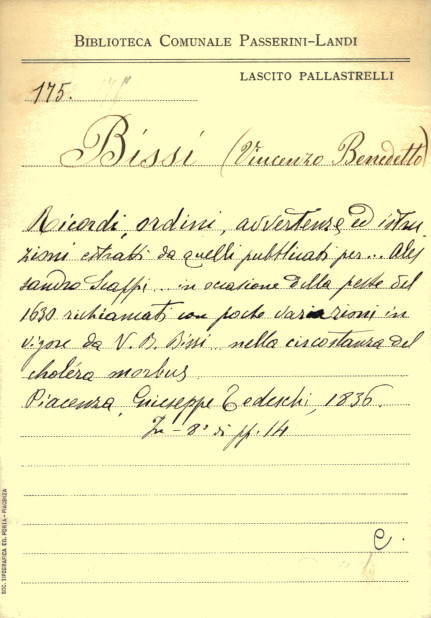 BIBLIOTECA COMUNALE PASSERINI-LANDI
LASCITO PALLASTRELLI
175.
Bissi (Vincenzo Benedetto)
Ricordi, ordini, avvertenze ed istru-
zioni estratti da quelli pubblicati per... Ales
sandro Scappi... in occasione della peste del
1630 richiamati con poche variazioni in
vigore da V. B. Bissi... nella circostanza del
choléra morbus
Piacenza, Giuseppe Tedeschi, 1836.
In-8° di pp. 14
C.
SOC. TIPOGRAFICA ED. PORTA - PIACENZA